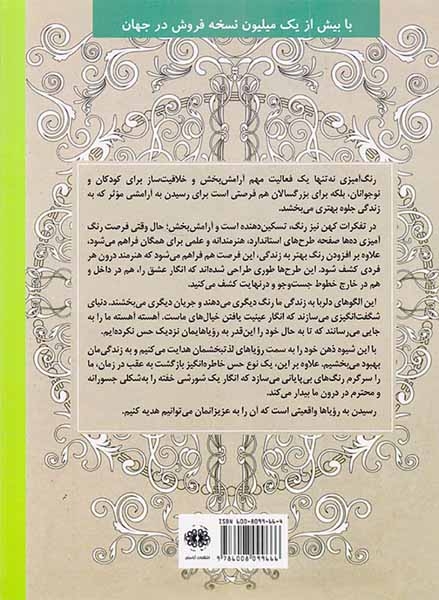 با بیش از یک میلیون نسخه فروش در جهان
رنگ‌آمیزی نه‌تنها یک فعالیت مهم آرامش‌بخش و خلاقیت‌ساز برای کودکان و
نوجوانان، بلکه برای بزرگسالان هم فرصتی است برای رسیدن به آرامشی مؤثر که به
زندگی جلوه بهتری می‌بخشد.
در تفکرات کهن نیز رنگ، تسکین‌دهنده است و آرامش‌بخش؛ حال وقتی فرصت رنگ
آمیزی ده‌ها صفحه طرح‌های استاندارد، هنرمندانه و علمی برای همگان فراهم می‌شود،
علاوه بر افزودن رنگ بهتر به زندگی، این فرصت هم فراهم می‌شود که هنرمند درون هر
فردی کشف شود. این طرح‌ها طوری طراحی شده‌اند که انگار عشق را، هم در داخل و
هم در خارج خطوط جست‌وجو و درنهایت کشف می‌کنی.
این الگوهای دلربا به زندگی ما رنگ دیگری می‌دهند و جریان دیگری می‌بخشند. دنیای
شگفت‌انگیزی می‌سازند که انگار عینیت یافتن خیال‌های ماست. آهسته آهسته ما را به
جایی می‌رسانند که تا به حال خود را این‌قدر به رؤیاهایمان نزدیک حس نکرده‌ایم.
با این شیوه ذهن خود را به سمت رؤیاهای لذتبخشمان هدایت می‌کنیم و به زندگی‌مان
بهبود می‌بخشیم. علاوه بر این، یک نوع حس خاطره‌انگیز بازگشت به عقب در زمان، ما
را سرگرم رنگ‌های بی‌پایانی می‌سازد که انگار یک شورشی خفته را به‌شکلی جسورانه
و محترم در درون ما بیدار می‌کند.
رسیدن به رؤیاها واقعیتی است که آن را به عزیزانمان می‌توانیم هدیه کنیم.
ISBN 600-8099-66-4
9 786008 099666